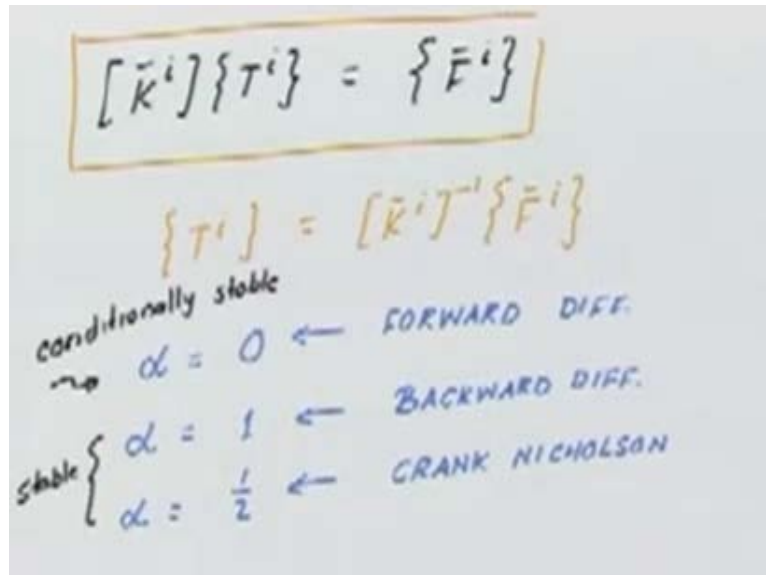 [K̄ⁱ]{Tⁱ} = {F̄ⁱ}
{Tⁱ} = [K̄ⁱ]⁻¹{F̄ⁱ}
conditionally stable
→ α = 0 ← FORWARD DIFF.
stable { α = 1 ← BACKWARD DIFF.
α = 1/2 ← CRANK NICHOLSON